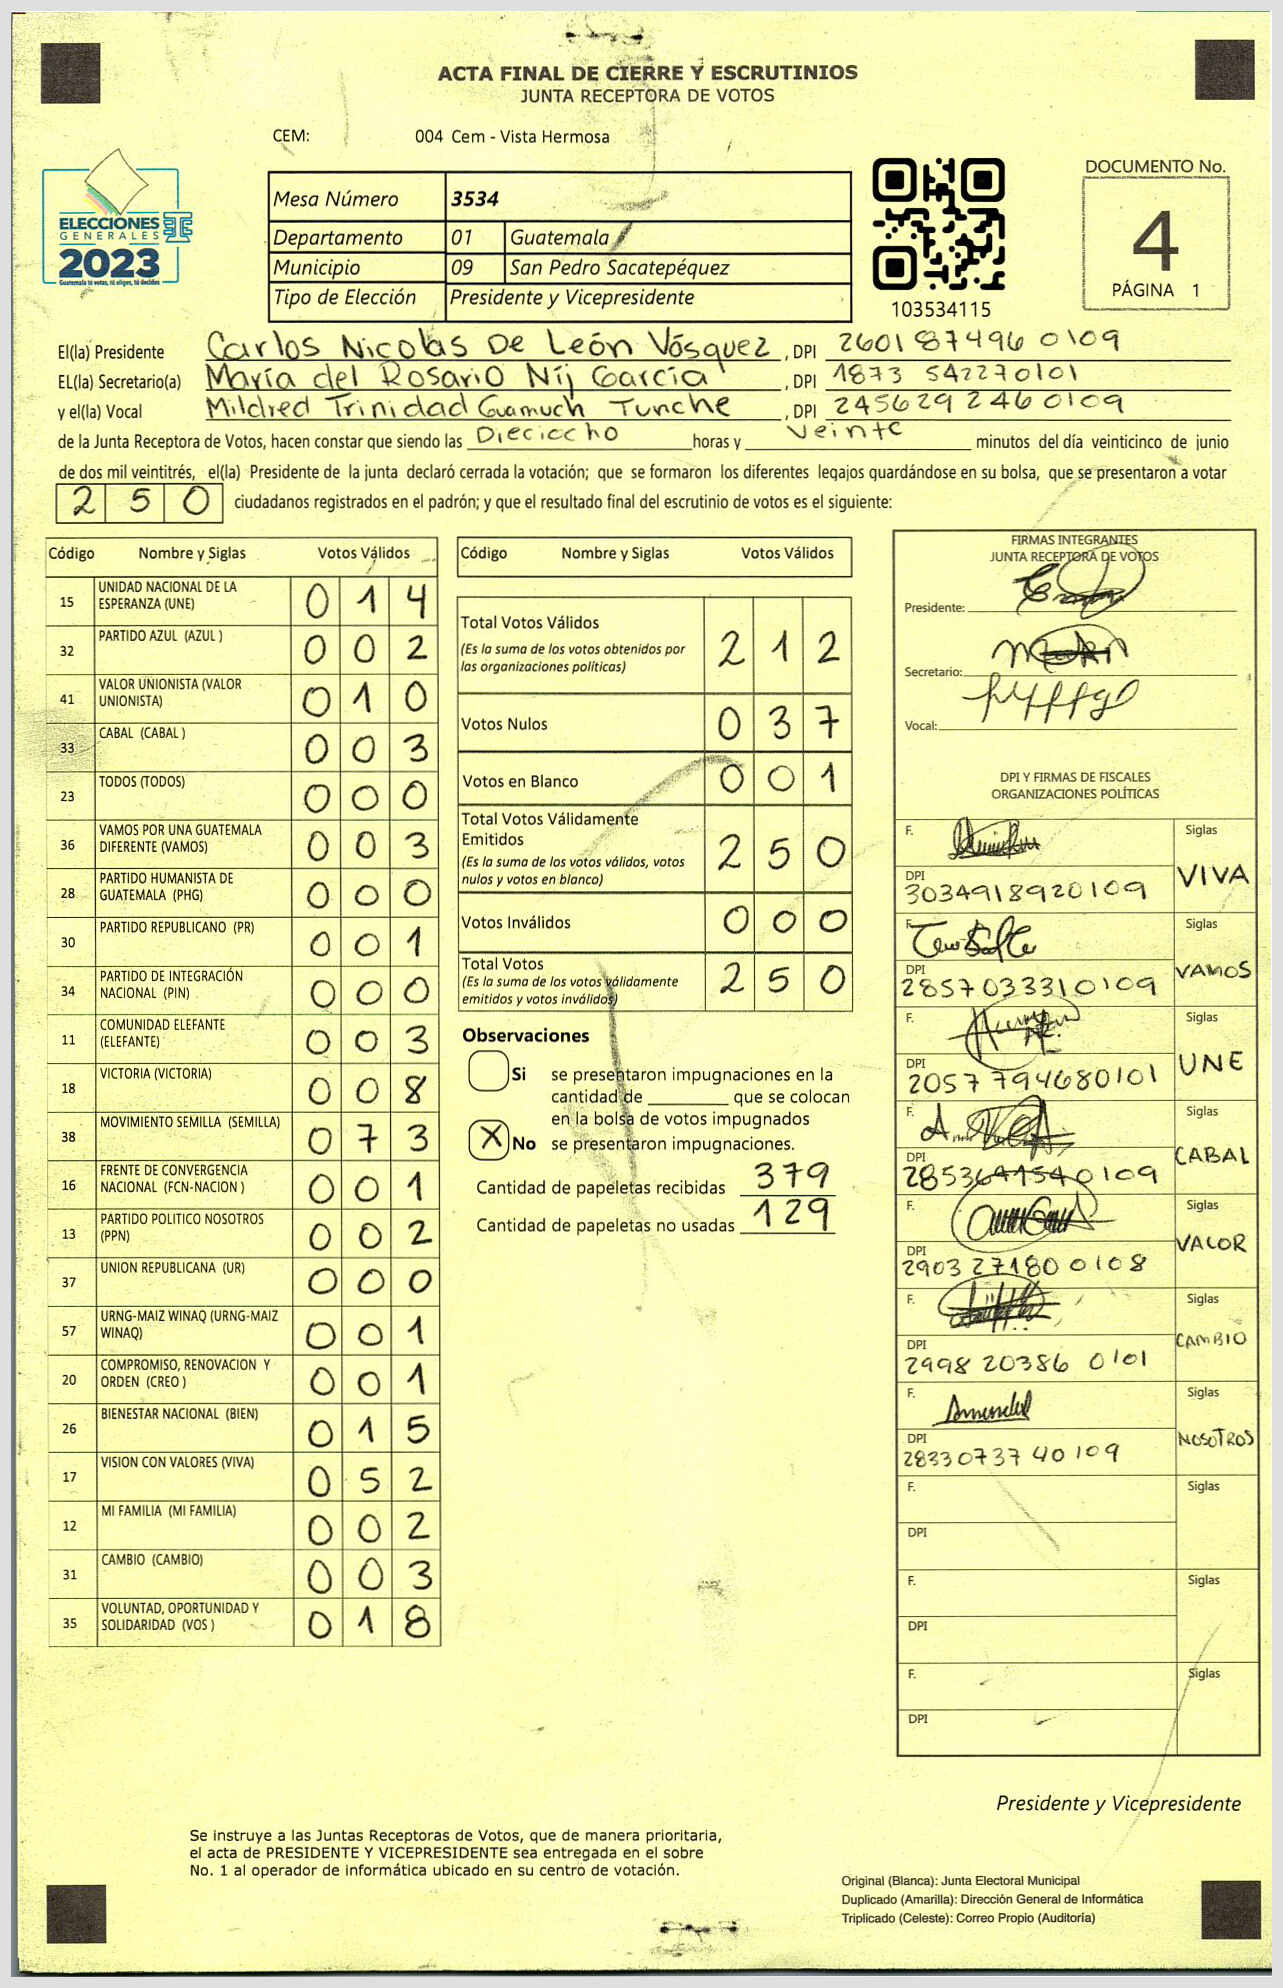 ACTA FINAL DE CIERRE Y ESCRUTINIOS
JUNTA RECEPTORA DE VOTOS
CEM: 004 Cem - Vista Hermosa
ELECCIONES
GENERALES
2023
Guatemala tú votas, tú eliges, tú decides
Mesa Número 3534
Departamento 01 Guatemala
Municipio 09 San Pedro Sacatepéquez
Tipo de Elección Presidente y Vicepresidente
103534115
DOCUMENTO No.
4
PÁGINA 1
El(la) Presidente Carlos Nicolas De León Vósquez, DPI 2601874960109
EL(la) Secretario(a) María del Rosario Nij García, DPI 1873 542270101
y el(la) Vocal Mildred Trinidad Guamuch Tunche, DPI 2456292460109
de la Junta Receptora de Votos, hacen constar que siendo las Dieciocho horas y veinte minutos del día veinticinco de junio
de dos mil veintitrés, el(la) Presidente de la junta declaró cerrada la votación; que se formaron los diferentes legajos guardándose en su bolsa, que se presentaron a votar
250 ciudadanos registrados en el padrón; y que el resultado final del escrutinio de votos es el siguiente:
Código Nombre y Siglas Votos Válidos
15 UNIDAD NACIONAL DE LA ESPERANZA (UNE) 014
32 PARTIDO AZUL (AZUL ) 002
41 VALOR UNIONISTA (VALOR UNIONISTA) 010
33 CABAL (CABAL ) 003
23 TODOS (TODOS) 000
36 VAMOS POR UNA GUATEMALA DIFERENTE (VAMOS) 003
28 PARTIDO HUMANISTA DE GUATEMALA (PHG) 000
30 PARTIDO REPUBLICANO (PR) 001
34 PARTIDO DE INTEGRACIÓN NACIONAL (PIN) 000
11 COMUNIDAD ELEFANTE (ELEFANTE) 003
18 VICTORIA (VICTORIA) 008
38 MOVIMIENTO SEMILLA (SEMILLA) 073
16 FRENTE DE CONVERGENCIA NACIONAL (FCN-NACION ) 001
13 PARTIDO POLITICO NOSOTROS (PPN) 002
37 UNION REPUBLICANA (UR) 000
57 URNG-MAIZ WINAQ (URNG-MAIZ WINAQ) 001
20 COMPROMISO, RENOVACION Y ORDEN (CREO ) 001
26 BIENESTAR NACIONAL (BIEN) 015
17 VISION CON VALORES (VIVA) 052
12 MI FAMILIA (MI FAMILIA) 002
31 CAMBIO (CAMBIO) 003
35 VOLUNTAD, OPORTUNIDAD Y SOLIDARIDAD (VOS ) 018
Código Nombre y Siglas Votos Válidos
Total Votos Válidos 212
(Es la suma de los votos obtenidos por
las organizaciones políticas)
Votos Nulos 037
Votos en Blanco 001
Total Votos Válidamente
Emitidos 250
(Es la suma de los votos válidos, votos
nulos y votos en blanco)
Votos Inválidos 000
Total Votos 250
(Es la suma de los votos válidamente
emitidos y votos inválidos)
Observaciones
Si se presentaron impugnaciones en la
cantidad de ________ que se colocan
en la bolsa de votos impugnados
X No se presentaron impugnaciones.
Cantidad de papeletas recibidas 379
Cantidad de papeletas no usadas 129
FIRMAS INTEGRANTES
JUNTA RECEPTORA DE VOTOS
Presidente:
Secretario:
Vocal:
DPI Y FIRMAS DE FISCALES
ORGANIZACIONES POLÍTICAS
F. Siglas
DPI 3034918920109 VIVA
F. Siglas
DPI 2857033310109 VAMOS
F. Siglas
DPI 2057 794680101 UNE
F. Siglas
DPI CABAL
F. Siglas
DPI 2903 271800108 VALOR
F. Siglas
DPI 2998 20386 0101 CAMBIO
F. Siglas
DPI 28330737 40109 NOSOTROS
F. Siglas
DPI
F. Siglas
DPI
F. Siglas
DPI
Presidente y Vicepresidente
Se instruye a las Juntas Receptoras de Votos, que de manera prioritaria,
el acta de PRESIDENTE Y VICEPRESIDENTE sea entregada en el sobre
No. 1 al operador de informática ubicado en su centro de votación.
Original (Blanca): Junta Electoral Municipal
Duplicado (Amarilla): Dirección General de Informática
Triplicado (Celeste): Correo Propio (Auditoría)